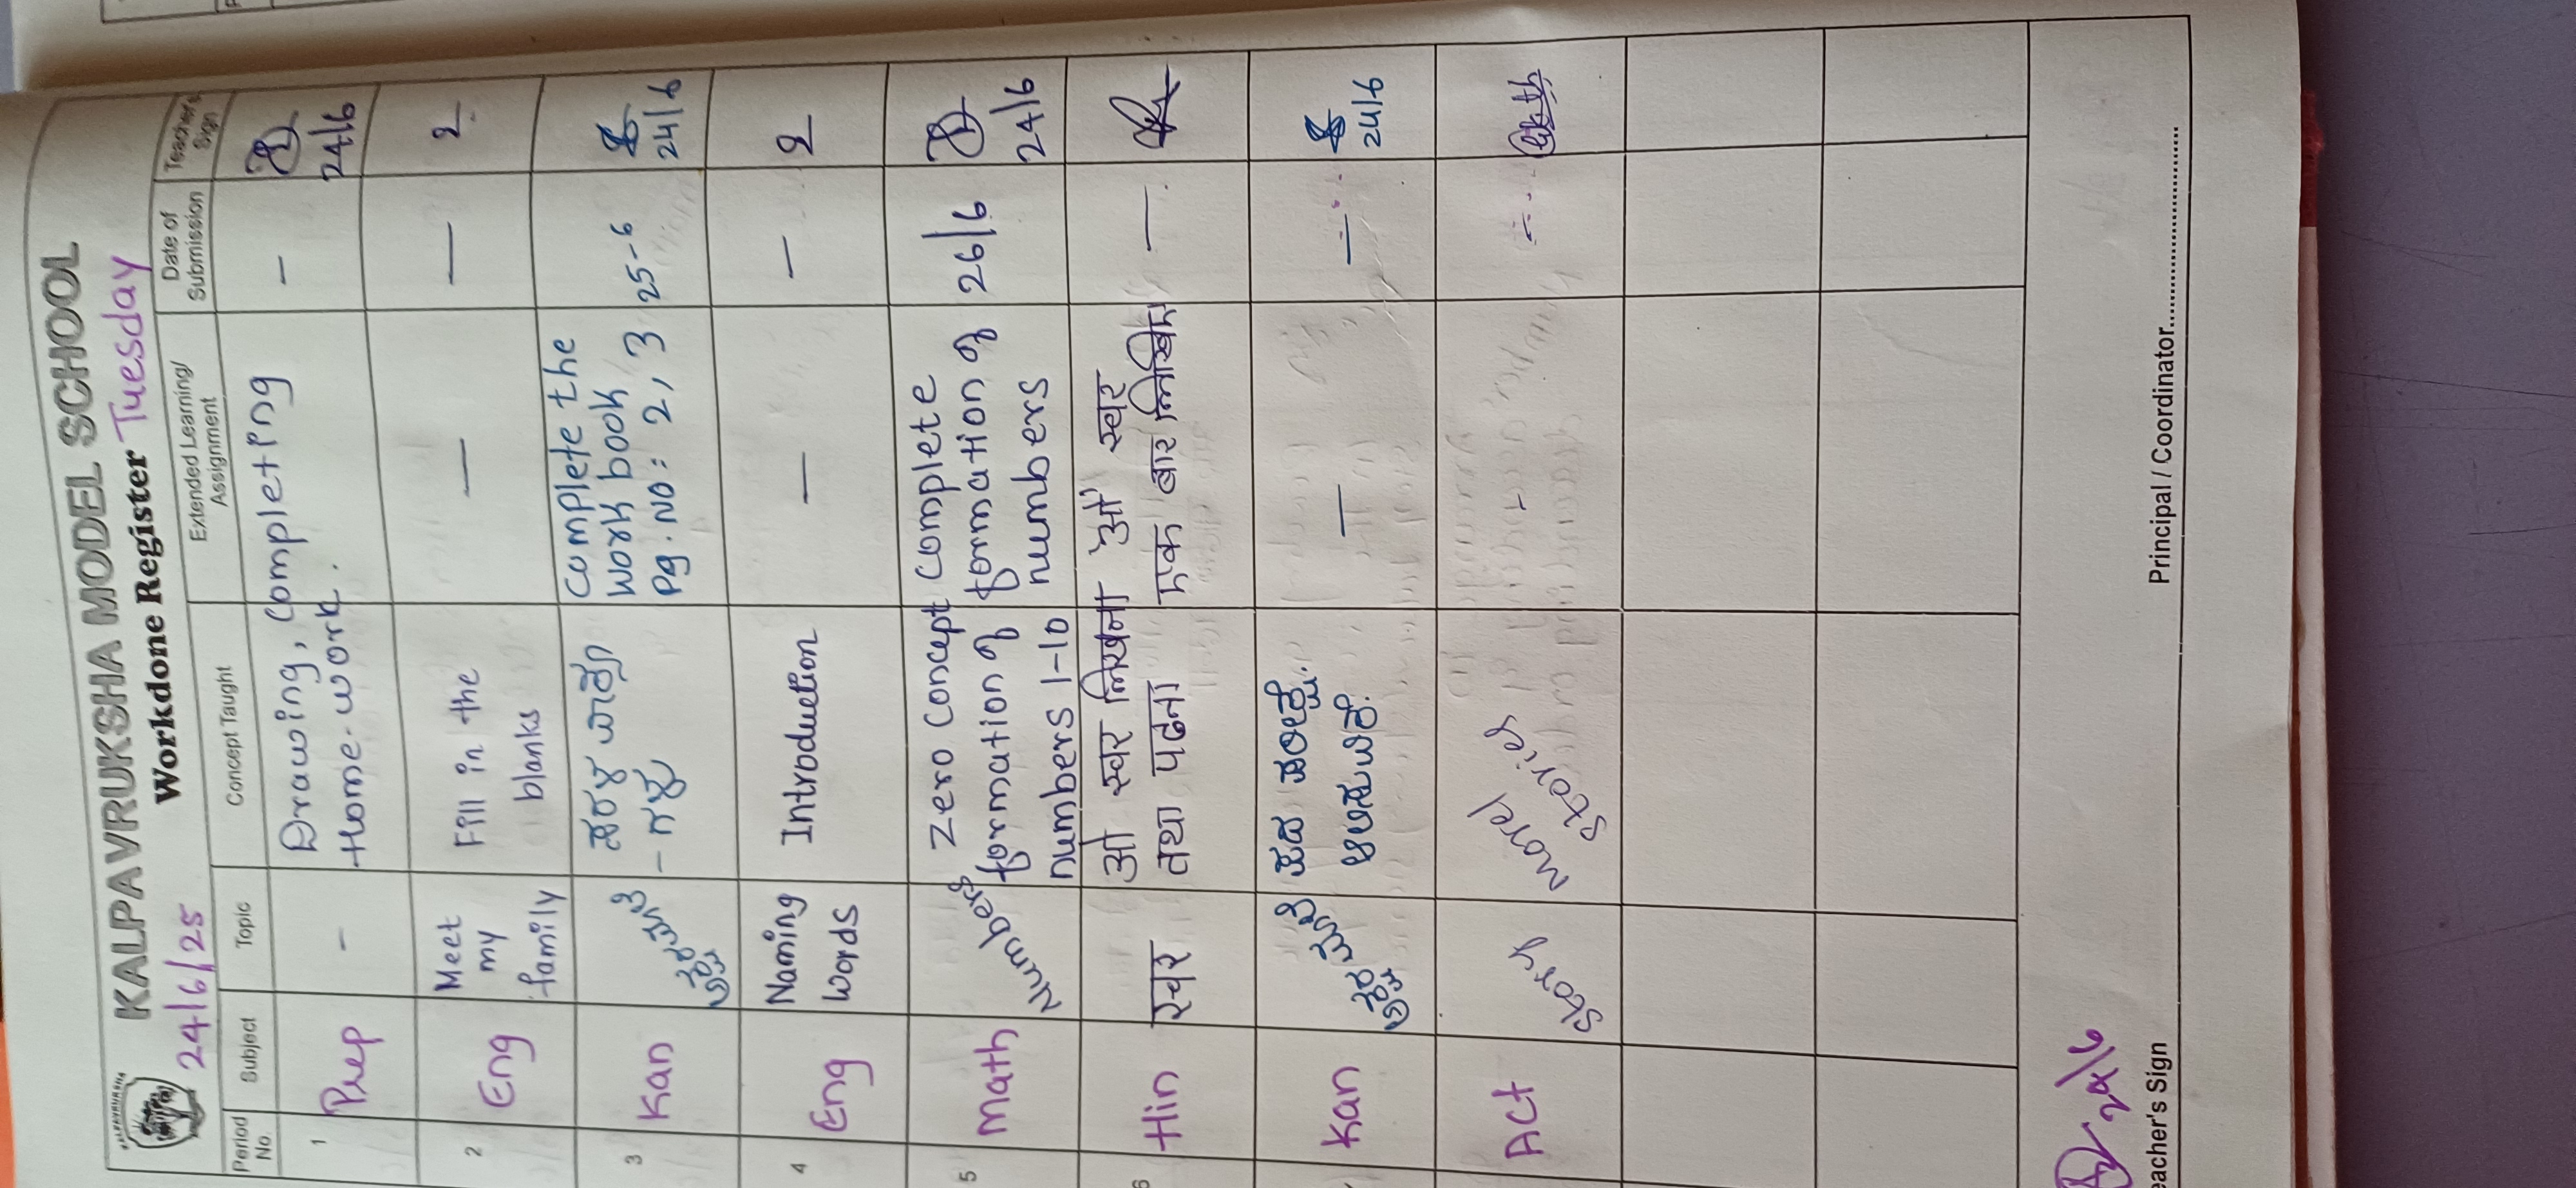 KALPAVRUKSHA MODEL SCHOOL
24/6/25 Workdone Register Tuesday
Period No. Subject Topic Concept Taught Extended Learning/ Assignment Date of Submission Teacher's Sign
1 Prep - Drawing, Completing - 24/6
Home-work.
2 Eng Meet my family Fill in the blanks — —
3 Kan ಸರಳ
- ಗಳು
Complete the
work book
Pg. No: 2, 3
25-6
24/6
4 Eng Naming words Introduction — —
5 Math Numbers Zero concept
formation of
numbers 1-10
Complete
formation of
numbers
26/6
24/6
6 Hin स्वर ओ स्वर लिखना
तथा पढना
ओ स्वर
एक बार लिखिए
—
Kan ಪದ
— — 24/6
Act Story Morel
Stories
- -
24/6
eacher's Sign Principal / Coordinator